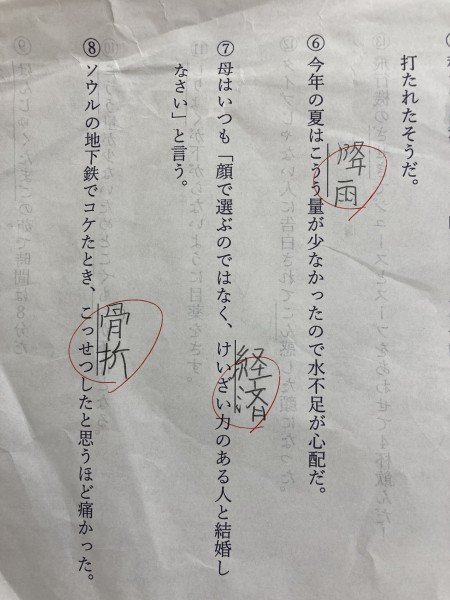 打たれたそうだ。
⑥ 今年の夏はこうう量が少なかったので水不足が心配だ。
降雨
⑦ 母はいつも「顔で選ぶのではなく、けいざい力のある人と結婚し
なさい」と言う。
経済
⑧ ソウルの地下鉄でコケたとき、こっせつしたと思うほど痛かった。
骨折